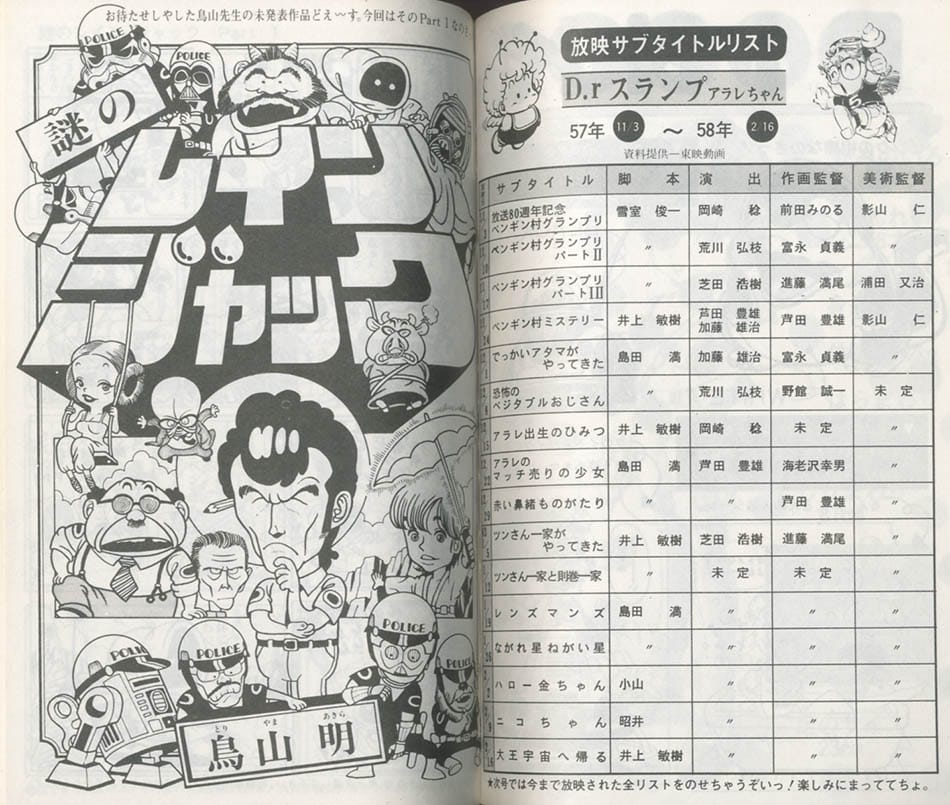 お待たせしやした鳥山先生の未発表作品どえ〰す。今回はそのPart 1なのさ。
POLICE
POLICE
謎の
レイン
ジャック
POLICE
POLICE
POLICE
POLICE
とり やま あきら
鳥山 明
放映サブタイトルリスト
D.r スランプ アラレちゃん
57年 11/3 〜 58年 2/16
資料提供―東映動画
サブタイトル 脚本 演出 作画監督 美術監督
11/3 放送80週年記念
ペンギン村グランプリ 雪室 俊一 岡崎 稔 前田みのる 影山 仁
10 ペンギン村グランプリ
パートⅡ 〃 荒川 弘枝 富永 貞義 〃
17 ペンギン村グランプリ
パートIII 〃 芝田 浩樹 進藤 満尾 浦田 又治
24 ペンギン村ミステリー 井上 敏樹 芦田 豊雄
加藤 雄治 芦田 豊雄 影山 仁
12/1 でっかいアタマが
やってきた 島田 満 加藤 雄治 富永 貞義 〃
8 恐怖の
ベジタブルおじさん 〃 荒川 弘枝 野館 誠一 未定
15 アラレ出生のひみつ 井上 敏樹 岡崎 稔 未定 〃
22 アラレの
マッチ売りの少女 島田 満 芦田 豊雄 海老沢幸男 〃
29 赤い鼻緒ものがたり 〃 〃 芦田 豊雄 〃
5 ツンさん一家が
やってきた 井上 敏樹 芝田 浩樹 進藤 満尾 〃
12 ツンさん一家と則巻一家 〃 未定 未定 〃
19 レンズマンズ 島田 満 〃 〃 〃
26 ながれ星ねがい星 〃 〃 〃
2 ハロー金ちゃん 小山 〃 〃 〃
9 ニコちゃん 昭井 〃 〃 〃
16 大王宇宙へ帰る 井上 敏樹 〃 〃 〃
★次号では今まで放映された全リストをのせちゃうぞいっ！楽しみにまっててちょ。